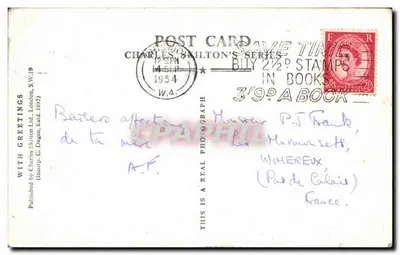 POST CARD
CHARLES SKILTON'S SERIES
12 15 PM
14 SEP
1954
W.4.
SAVE TIME
BUY 2½D STAMPS
IN BOOKS
3'9D A BOOK
E R
WITH GREETINGS
Published by Charles Skilton Ltd., London, S.W.19
(Incorp. C. Degen, estd. 1895)
Baisers affectueux
de ta mère
A.F.
THIS IS A REAL PHOTOGRAPH
Monsieur P.J. Frank,
Les
WIMEREUX
(Pas de Calais)
France.